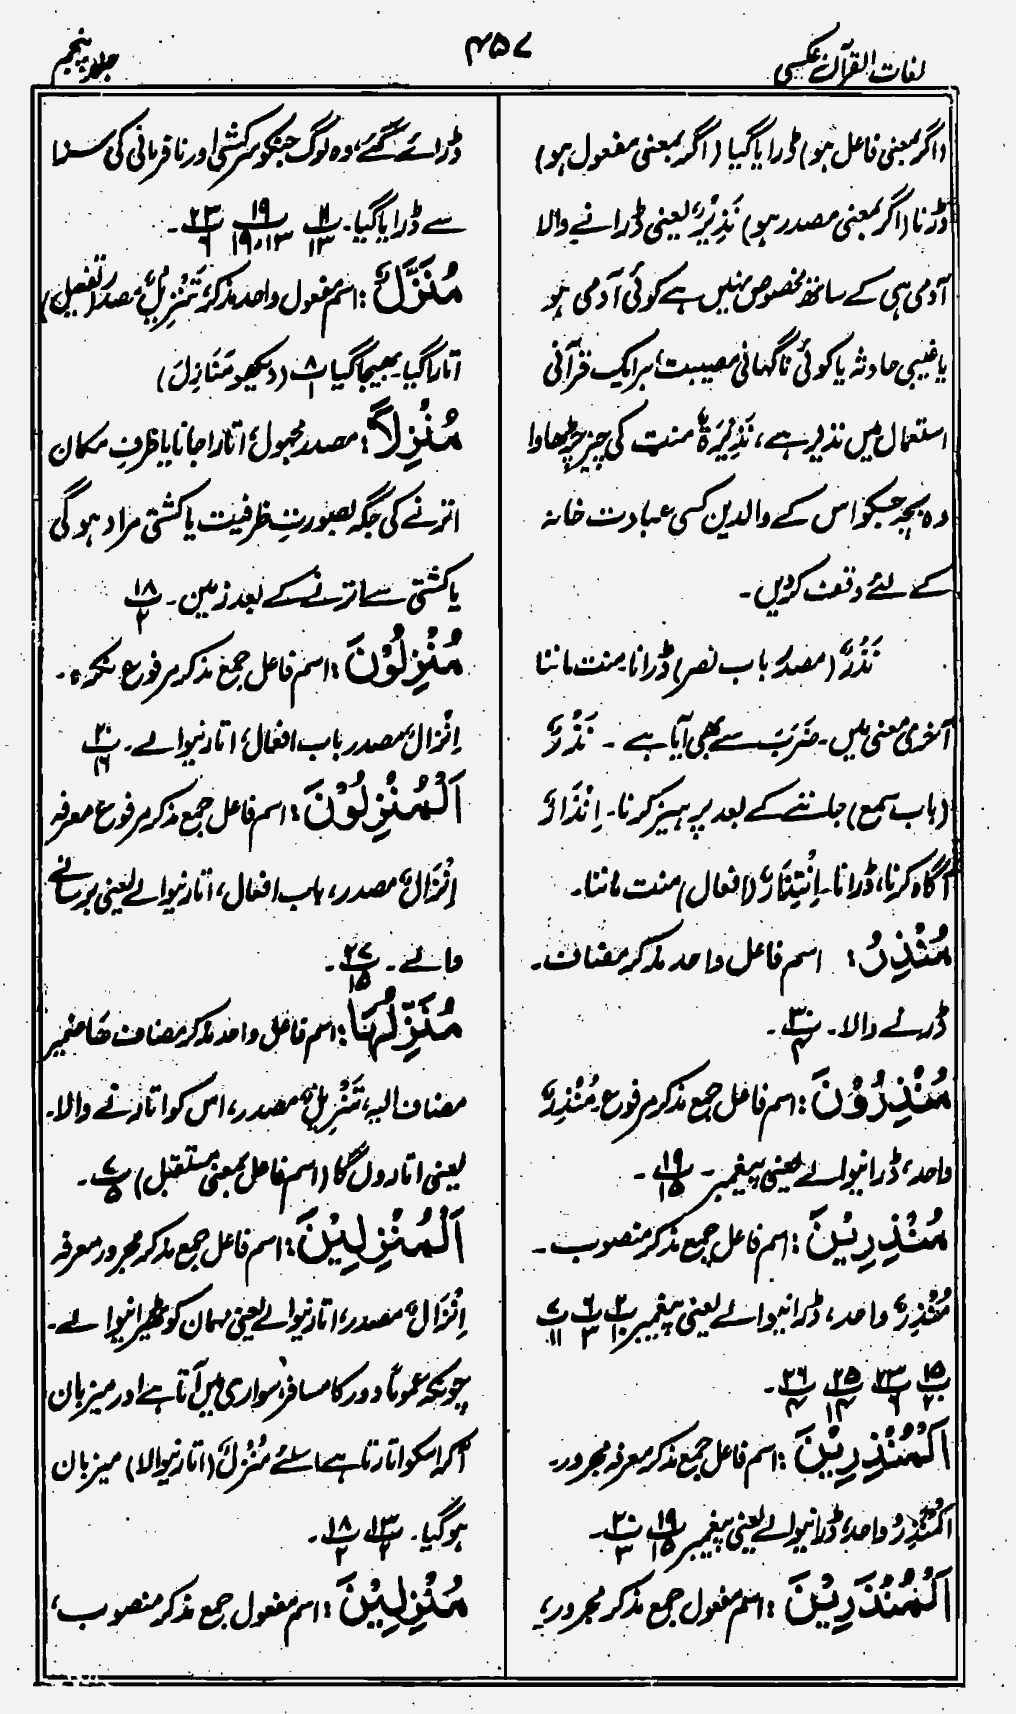 لغات القرآن عکسی
۴۵۷
جلد پنجم
(اگر بمعنی فاعل ہو) ڈرایا گیا (اگر بمعنی مفعول ہو)
ڈرنا (اگر بمعنی مصدر ہو) نَذِیْرٌ یعنی ڈرانے والا
آدمی ہی کے ساتھ مخصوص نہیں ہے کوئی آدمی ہو
یا غیبی حادثہ یا کوئی ناگہانی مصیبت، ہر ایک قرآنی
استعمال میں نذیر ہے، نَذِیْرَۃٌ منت کی چیز چڑھاوا
وہ بچہ جسکو اس کے والدین کسی عبادت خانہ
کے لئے وقف کردیں۔
نَذْرٌ (مصدر باب نصر) ڈرانا۔ منت ماننا
آخری معنی میں۔ ضَرَبَ سے بھی آیا ہے۔ نَذْرٌ
(باب سمع) جاننے کے بعد پرہیز کرنا۔ اِنْذَارٌ
آگاہ کرنا، ڈرانا۔ اِنْتِذَارٌ (افعال) منت ماننا۔
مُنْذِرُ: اسم فاعل واحد مذکر مضاف۔
ڈرانے والا۔ ۳۰/۴ ۔
مُنْذِرُوْنَ: اسم فاعل جمع مذکر مرفوع۔ مُنْذِرٌ
واحد، ڈرانیوالے یعنی پیغمبر۔ ۱۹/۱۵ ۔
مُنْذِرِیْنَ: اسم فاعل جمع مذکر منصوب۔
مُنْذِرٌ واحد، ڈرانیوالے یعنی پیغمبر ۲/۱۰ ۶/۳ ۷/۱۱
۱۵/۲۰ ۲۳/۶ ۲۵/۱۴ ۲۶/۴ ۔
اَلْمُنْذِرِیْنَ: اسم فاعل جمع مذکر معرفہ مجرور۔
اَلْمُنْذِرُ واحد، ڈرانیوالے یعنی پیغمبر ۱۹/۱۵ ۲۰/۳ ۔
اَلْمُنْذَرِیْنَ: اسم مفعول جمع مذکر مجرور،
ڈرائے گئے، وہ لوگ جنکو سرکشی اور نافرمانی کی سزا
سے ڈرایا گیا۔ ۱۱/۱۳ ۱۹/۱۹،۱۳ ۲۳/۶ ۔
مُنَزَّلٌ: اسم مفعول واحد مذکر، تَنْزِیْلٌ مصدر (تفعیل)
اتارا گیا۔ بھیجا گیا ۸/۱ (دیکھو مَنَازِلَ)
مُنْزَلًا: مصدر مجہول، اتارا جانا یا ظرفِ مکان
اترنے کی جگہ بصورتِ ظرفیت یا کشتی مراد ہوگی
یا کشتی سے اترنے کے بعد زمین۔ ۱۸/۲
مُنْزِلُوْنَ: اسم فاعل جمع مذکر مرفوع نکرہ۔
اِنْزَالٌ مصدر باب افعال، اتارنیوالے۔ ۲۰/۱۶
اَلْمُنْزِلُوْنَ: اسم فاعل جمع مذکر مرفوع معرفہ
اِنْزَالٌ مصدر، باب افعال، اتارنیوالے یعنی برسانے
والے۔ ۲۷/۱۵ ۔
مُنَزِّلُہَا: اسم فاعل واحد مذکر مضاف ھَا ضمیر
مضاف الیہ، تَنْزِیْلٌ مصدر، اس کو اتارنے والا۔
یعنی اتاروں گا (اسم فاعل بمعنی مستقبل) ۷/۵ ۔
اَلْمُنْزِلِیْنَ: اسم فاعل جمع مذکر مجرور معرفہ
اِنْزَالٌ مصدر، اتارنیوالے یعنی مہمان کو ٹھیرانیوالے۔
چونکہ عموماً دور کا مسافر سواری میں آتا ہے اور میزبان
آکر اسکو اتارتا ہے اسلئے مُنْزِلٌ (اتارنیوالا) میزبان
ہوگیا۔ ۱۳/۲ ۱۸/۲ ۔
مُنْزَلِیْنَ: اسم مفعول جمع مذکر منصوب،